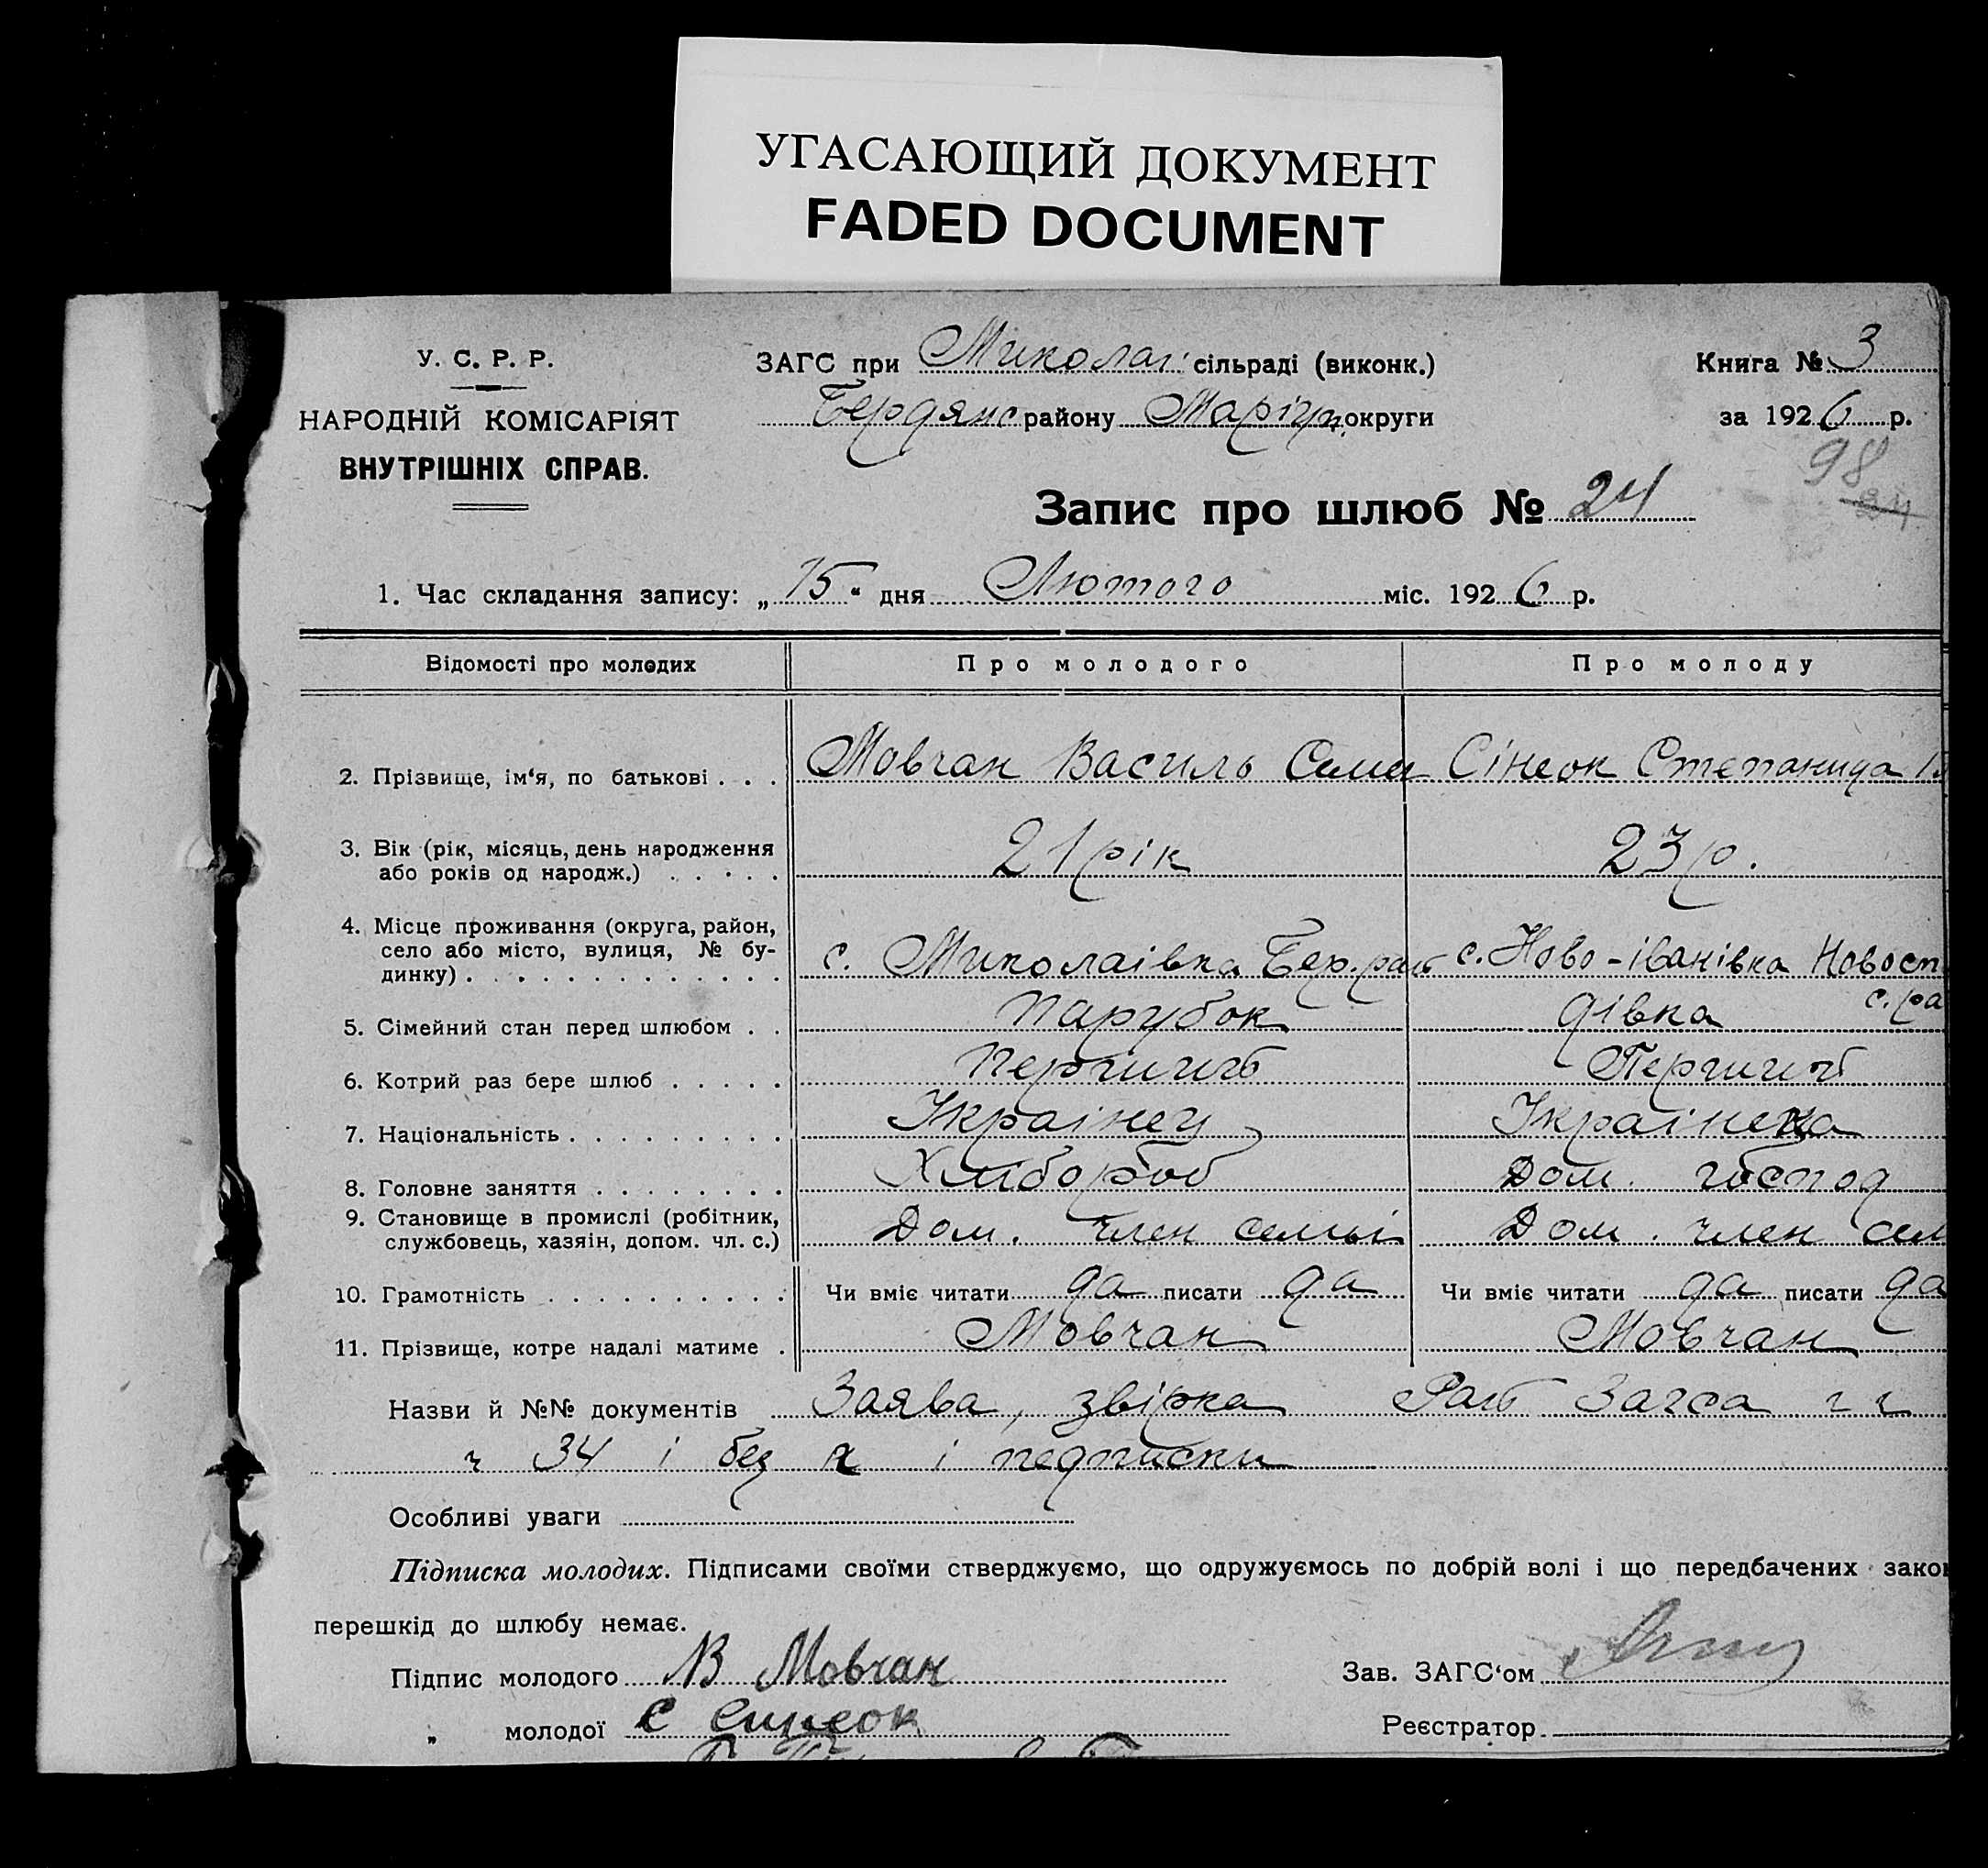 УГАСАЮЩИЙ ДОКУМЕНТ
FADED DOCUMENT
У. С. Р. Р.
НАРОДНІЙ КОМІСАРІЯТ
ВНУТРІШНІХ СПРАВ.
ЗАГС при Миколаї сільраді (виконк.)
Бердянс району Маріуп. округи
Книга № 3
за 1926 р.
98
24
Запис про шлюб № 24
1. Час складання запису: „15“ дня Лютого міс. 1926 р.
Відомості про молодих Про молодого Про молоду
2. Прізвище, ім‘я, по батькові . . . Мовчан Василь Семе Сінеок Степанида
3. Вік (рік, місяць, день народження
або років од народж.) . . . . . 21 рік 23 р.
4. Місце проживання (округа, район,
село або місто, вулиця, № бу-
динку) . . . . . . . . . . . . . с. Миколаівка Бер. рай с. Ново-іванівка Новосп
с. ра
5. Сімейний стан перед шлюбом . . Парубок дівка
6. Котрий раз бере шлюб . . . . . Перший Перший
7. Національність . . . . . . . . . Украінец Украінека
8. Головне заняття . . . . . . . . Хлібороб Дом. господ
9. Становище в промислі (робітник,
службовець, хазяін, допом. чл. с.) Дом. член семьі Дом. член сем
10. Грамотність . . . . . . . . . . Чи вміє читати да писати да Чи вміє читати да писати да
11. Прізвище, котре надалі матиме . Мовчан Мовчан
Назви й №№ документів Заява, звірка Рай Загса
ч 34 і без і подписки
Особливі уваги
Підписка молодих. Підписами своїми стверджуємо, що одружуємось по добрій волі і що передбачених зако
перешкід до шлюбу немає.
Підпис молодого В Мовчан Зав. ЗАГС‘ом
„ молодої С Синеок Реєстратор